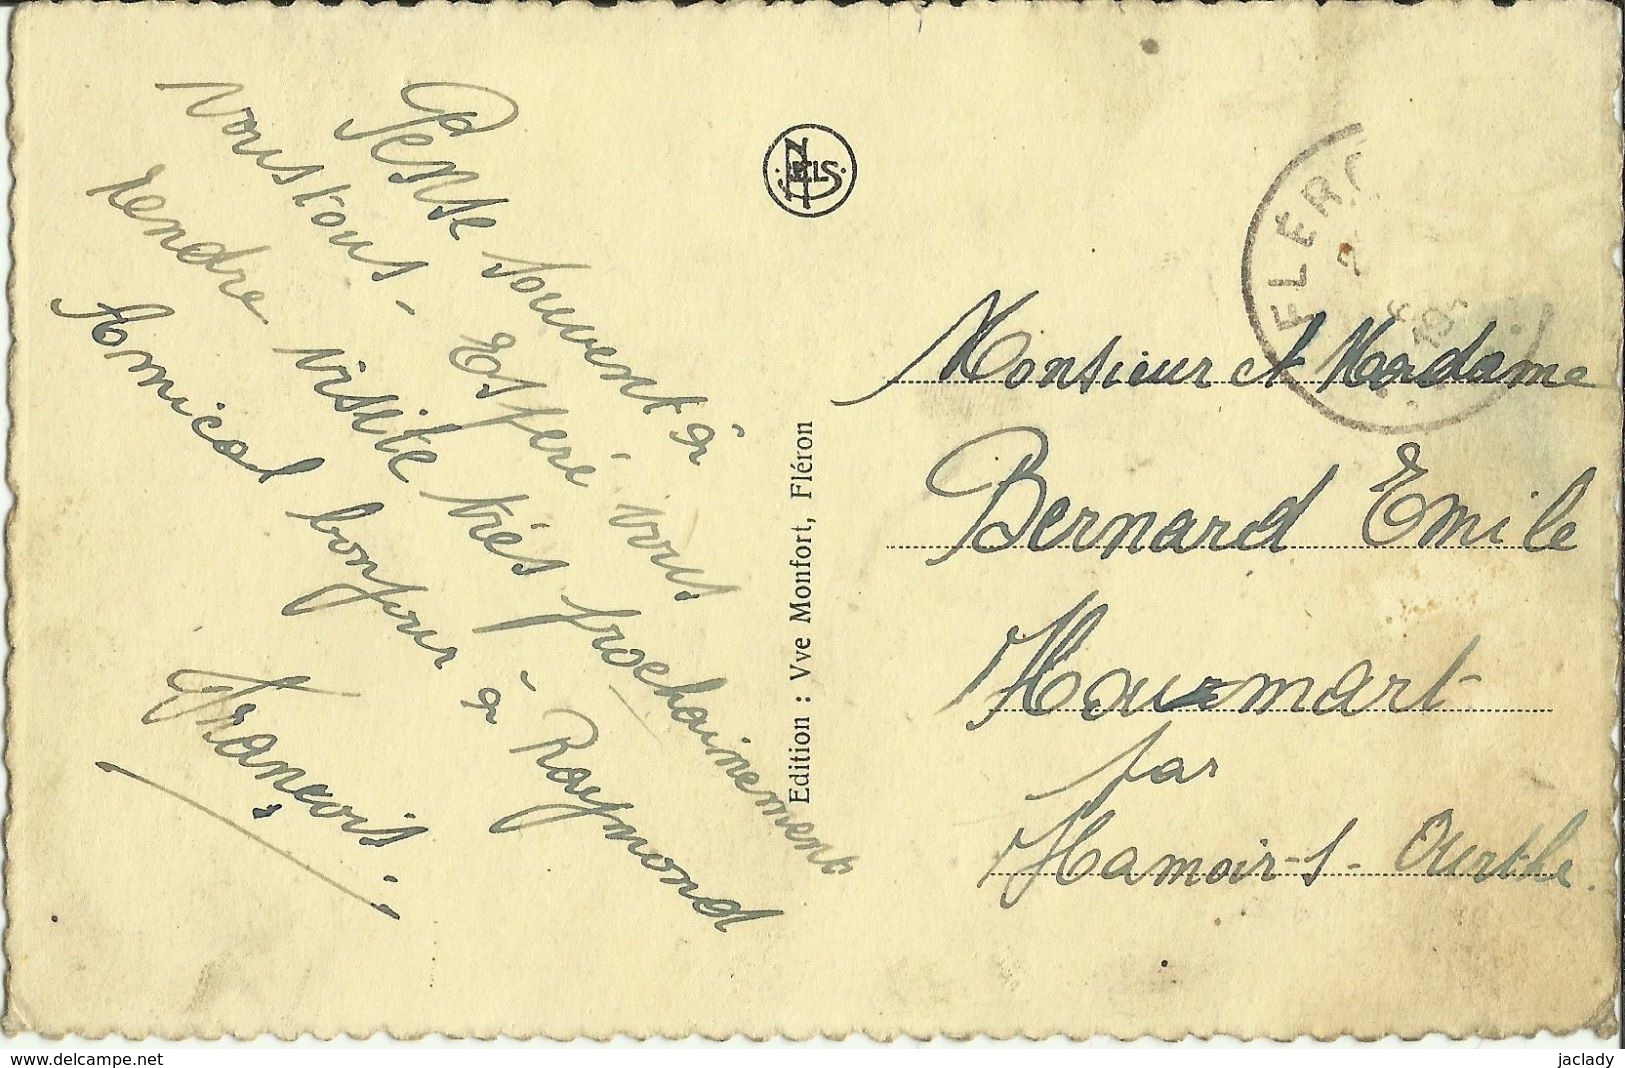 Pense souvent à
vous tous - Espère vous
rendre visite très prochainement
Amical bonjour à Raymond
François.
NELS
Edition : Vve Monfort, Fléron
FLÉRO
Monsieur et Madame
Bernard Emile
Hourmart
par
Hamoir-s-Ourthe.
www.delcampe.net
jaclady